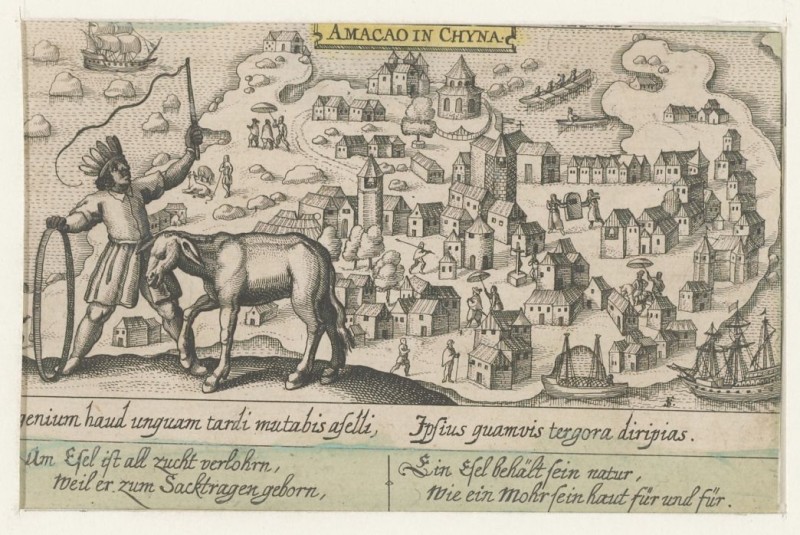 AMACAO IN CHYNA.
genium haud unquam tardi mutabis aselli,
Ipsius quamvis tergora diripias.
Am Esel ist all zucht verlohrn,
Weil er zum Sacktragen geborn,
Ein Esel behält sein natur,
Wie ein Mohr sein haut für und für.